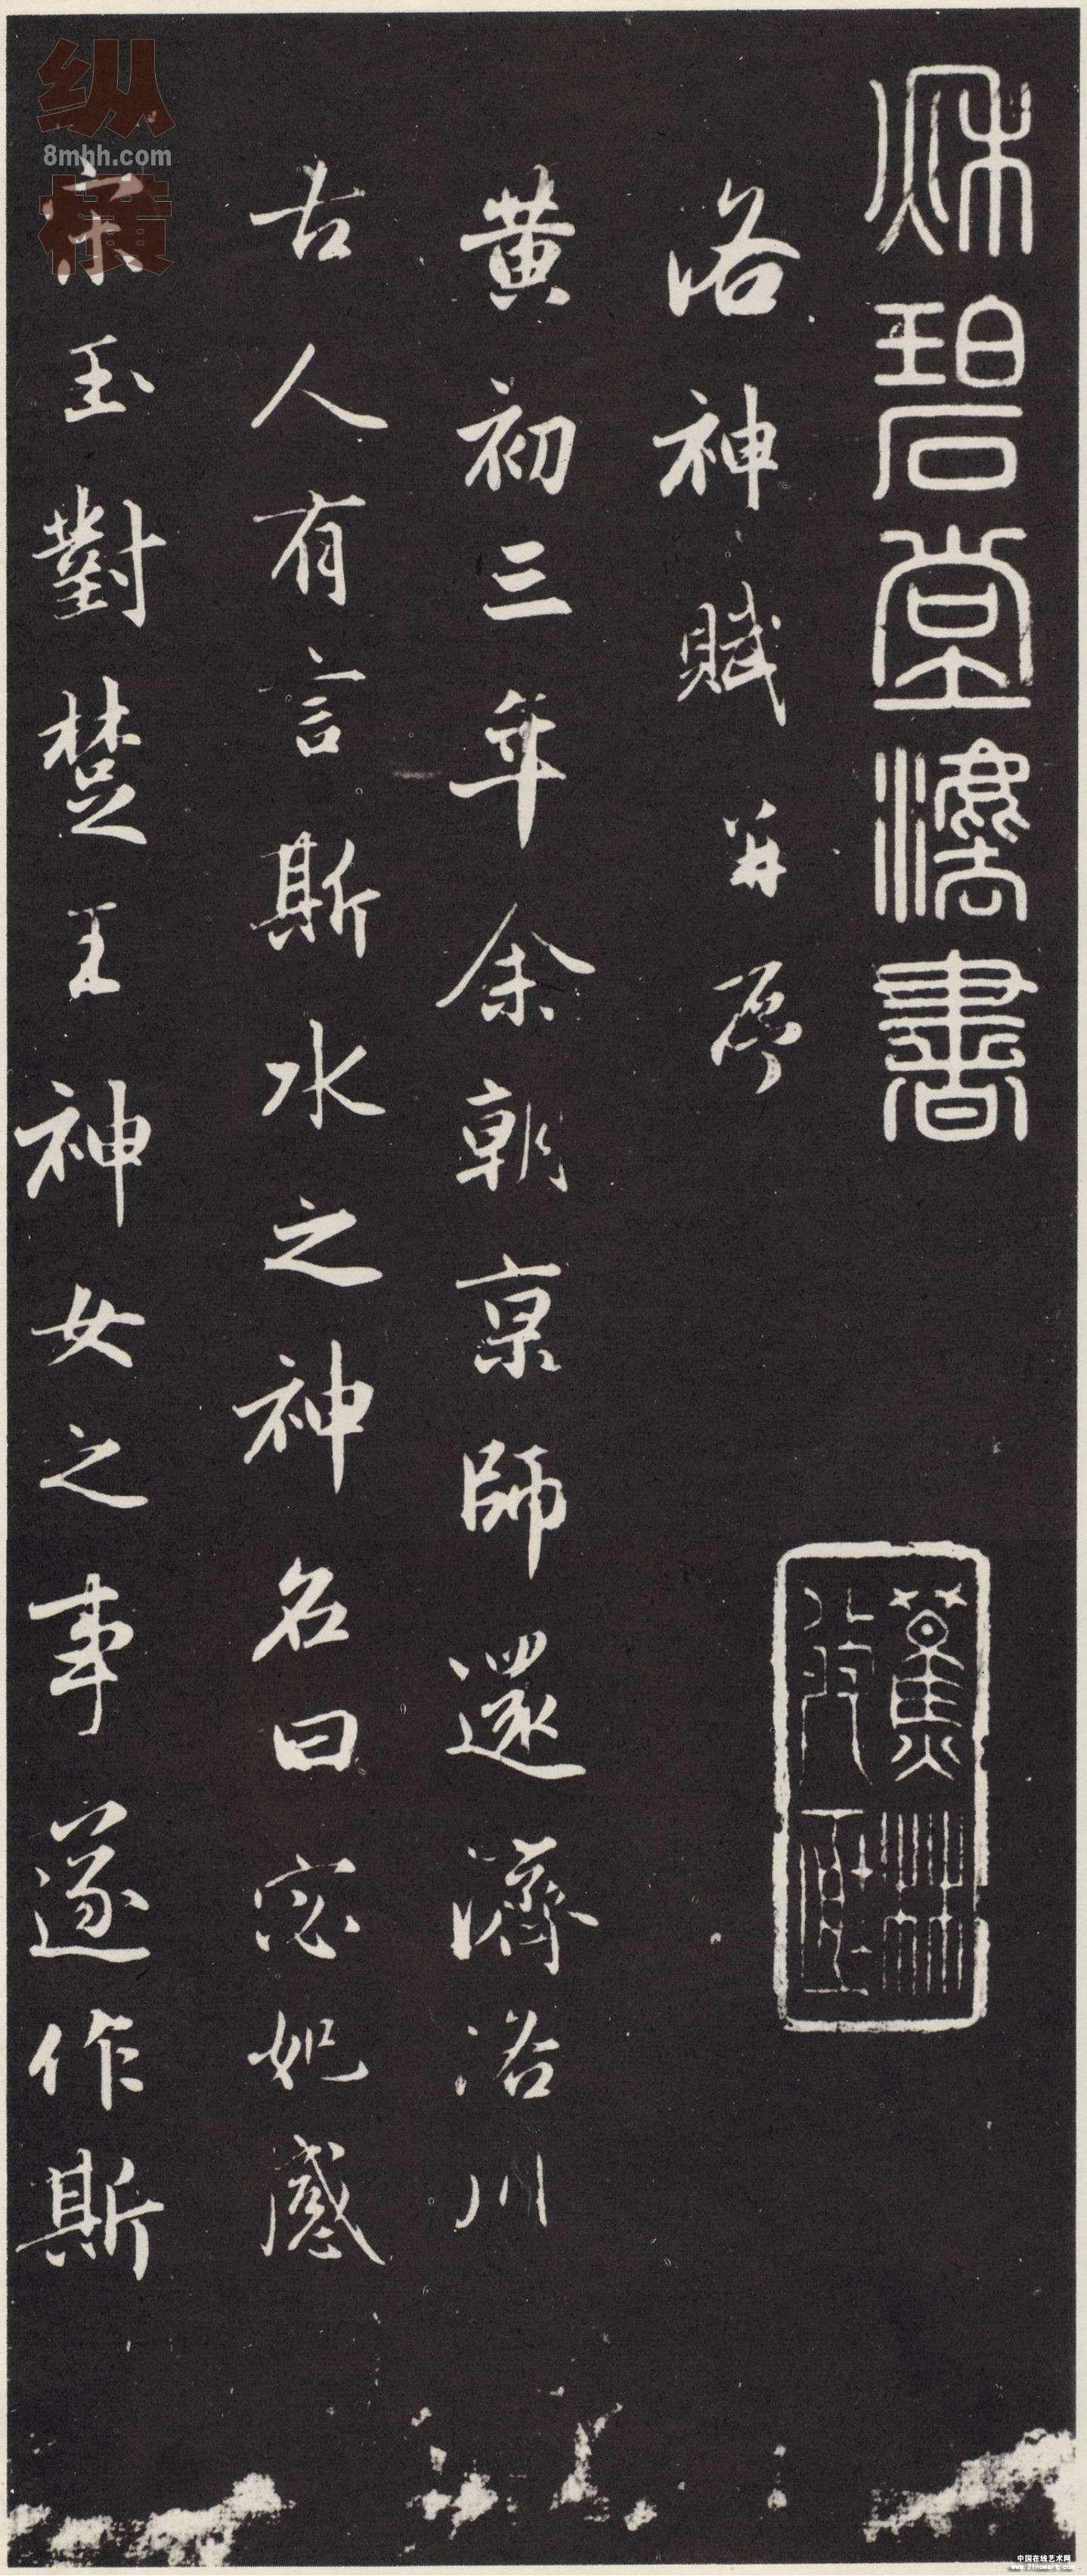 秌碧堂灋書
蕉林
洛神賦并序
黄初三年余朝京師還濟洛川
古人有言斯水之神名曰宓妃感
宋玉對楚王神女之事遂作斯
纵横
8mhh.com
中国在线艺术网